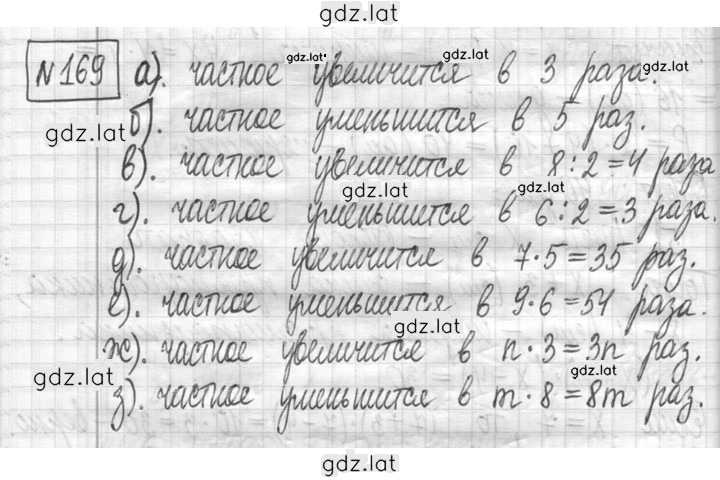 gdz.lat
№169 а). частное увеличится в 3 раза.
gdz.lat gdz.lat gdz.lat
б). частное уменьшится в 5 раз.
gdz.lat
в). частное увеличится в 8:2=4 раза
gdz.lat gdz.lat
г). частное уменьшится в 6:2=3 раза.
д). частное увеличится в 7·5=35 раз.
е). частное уменьшится в 9·6=54 раза.
gdz.lat
ж). частное увеличится в n·3=3n раз.
gdz.lat gdz.lat
з). частное уменьшится в m·8=8m раз.
gdz.lat